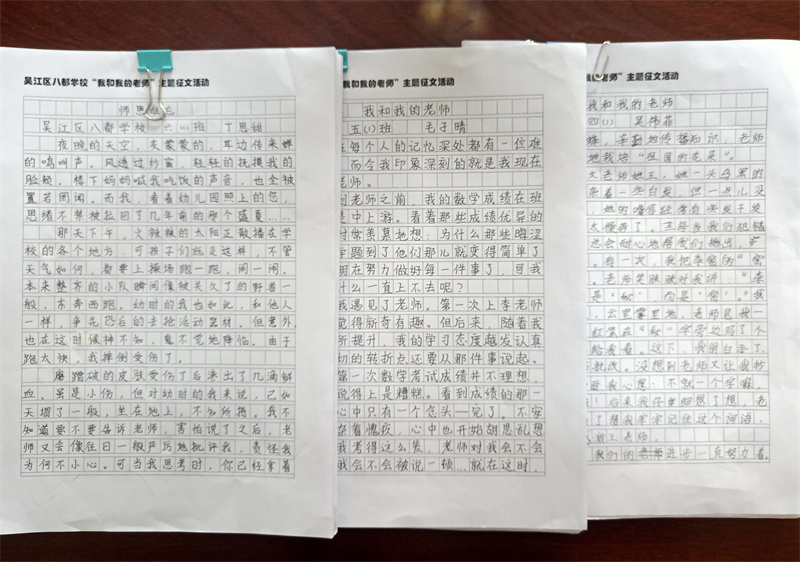 吴江区八都学校“我和我的老师”主题征文活动
师恩难忘
吴江区八都学校 六 班 丁思
夜晚的天空，灰蒙蒙的，耳边传来蝉
的鸣叫声。风透过纱窗，轻轻的抚摸我的
脸颊，楼下妈妈喊我吃饭的声音，也全被
置若罔闻。而我，看着幼儿园照上的您，
思绪不禁被拉回了几年前的那个盛夏……
那天下午，火辣辣的太阳正散播在学
校的各个地方，可孩子们就是这样，不管
天气如何，都要上操场跑一跑，闹一闹。
本来整齐的小队瞬间像被关久了的野兽一
般，东奔西跑。幼时的我也如此，和他人
一样，争先恐后的去抢活动器材。但意外
也在这时候神不知，鬼不觉地降临。由于
跑太快，我摔倒受伤了。
磨蹭破的皮肤受伤了后渗出了几滴鲜
血，虽是小伤，但对幼时的我来说，已如
天塌了一般，坐在地上，不知所措。我不
知道要不要告诉老师，害怕说了之后，老
师又会像往日一般严厉地批评我，责怪我
为何不小心。可当我思考时，你已经拿着
我和我的老师”主题征文活动
我和我的老师
五(1)班 毛子晴
在每个人的记忆深处都有一位难
而今我印象深刻的就是我现在
老师。
到老师之前，我的数学成绩在班
是中上游。看着那些成绩优异的
时常羡慕地想：为什么那些晦涩
学题到了他们那儿就变得简单了
明在努力做好每一件事了，可我
什么一直上不去呢？
我遇见了老师。第一次上李老师
觉得新奇有趣。但后来，随着我
断提升，我的学习态度越发认真
切的转折点还要从那件事说起。
第一次数学考试成绩并不理想，
说得上是糟糕。看到成绩的那一
心中只有一个念头—完了。不安
杂着愧疚，心中也开始胡思乱想
我考得这么差，老师对我会不会
我会不会被说一顿…就在这时，
的老师”主题征文活动
我和我的老师
四(1) 吴伟
辛勤地传播知识，老师
地栽培“祖国的花朵”。
文老师姓王，她一头乌黑的
杂着一些白发，但一点儿没
她的嗓音经常有些发
太频繁了。王老师当我们犯错
总会耐心地帮我们指出，扩
有一次，我把李
老师笑眯眯对我讲，“李
是‘ ’而是‘密’。”我
云里雾里地，老师见我一
红笔在“ ”字旁边写了个
给我看。这下，我明白
没想到老师又让我抄
时我心想：不就一个字嘛，
后来我仔细想了想，老
了想我牢牢记住这个词语，
王老师。
我们的老师进步一直努力着